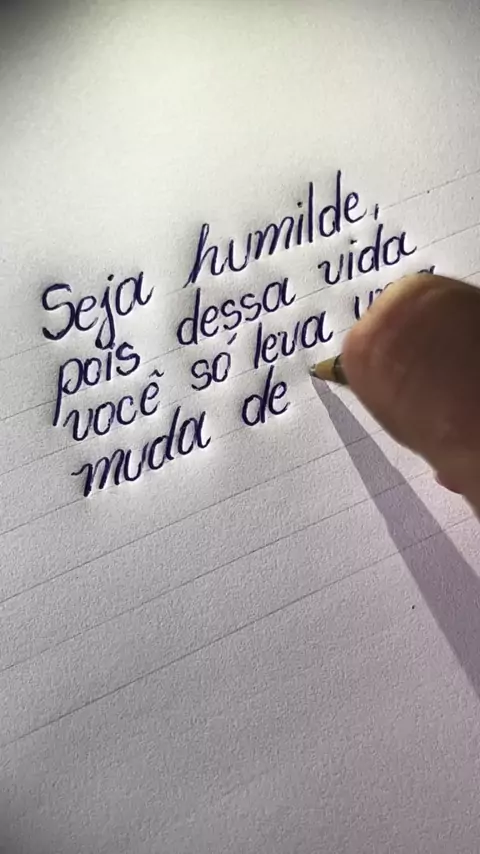 Seja humilde,
pois dessa vida
você só leva
muda de